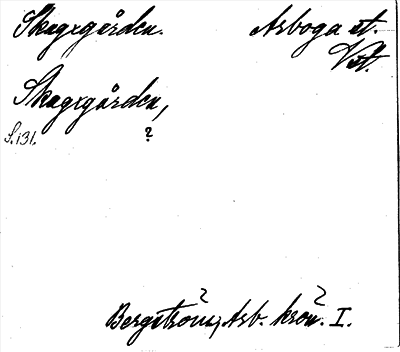 Skagxgården. Arboga st.
Vstm.
Skagxgården,
S. 131. ?
Bergström, Arb. krön. I.